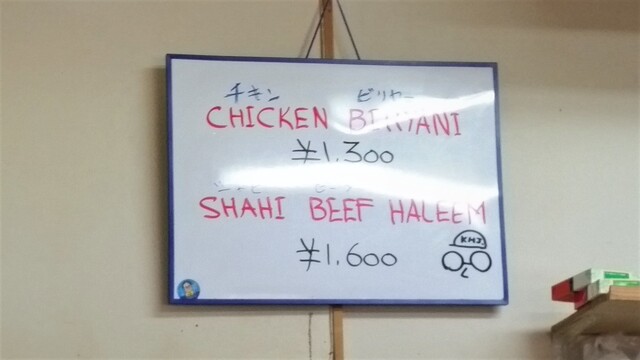 チキン
CHICKEN BIRIYANI
¥1,300
SHAHI BEEF HALEEM
¥1,600